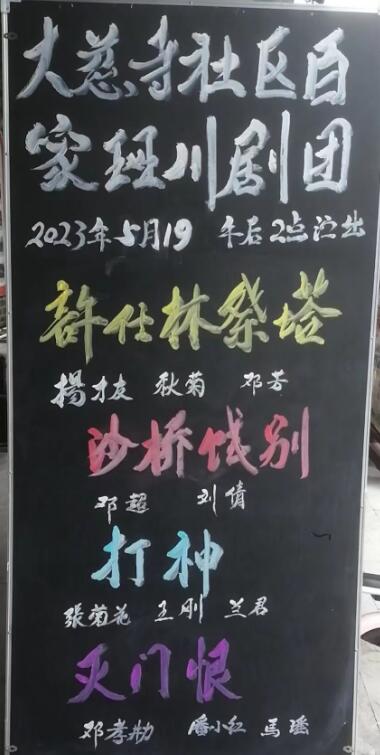 大慈寺社区百
家班川剧团
2023年5月19 午后2点演出
許仕林祭塔
揚才友 秋菊 邓芳
沙桥饯别
邓超 刘倩
打神
張菊花 王刚 兰君
灭门恨
邓孝勛 潘小红 馬瑶